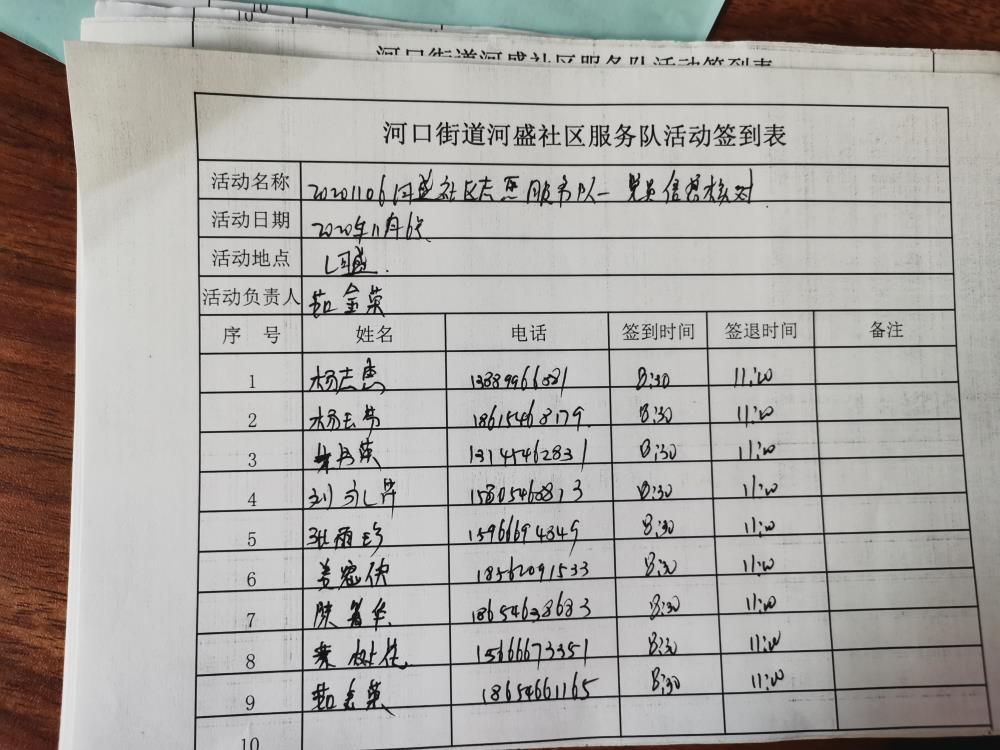 10
10
河口街道河盛社区服务队活动签到表
河口街道河盛社区服务队活动签到表
活动名称 20201106河盛社区志愿服务队一党员信息核对
活动日期 2020年11月6号
活动地点 河盛.
活动负责人 茹金荣
序 号 姓名 电话 签到时间 签退时间 备注
1 杨志惠 8:30 11:00
2 18615468179. 8:30 11:00
3 8:30 11:00
4 8:30 11:00
5 张丽珍 15966694849 8:30 11:00
6 姜宪伏 18562091533 8:30 11:00
7 18654638683 8:30 11:00
8 15666673351 8:30 11:00
9 茹金荣 18654661165 8:30 11:00
10